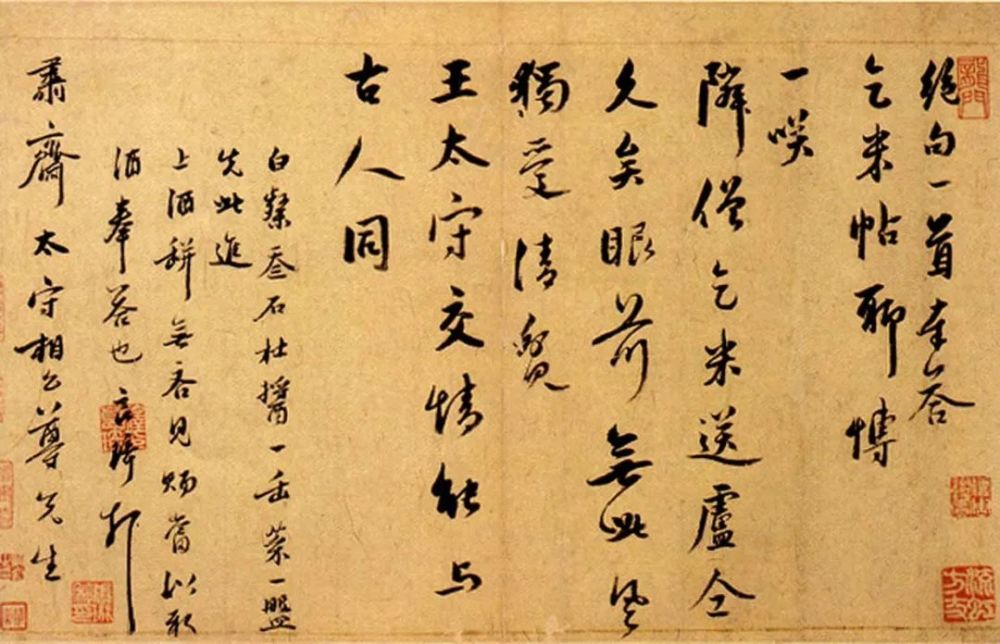 絕句一首奉答
乞米帖聊博
一咲
隣僧乞米送盧仝
久矣眼前無此風
獨受清貧
王太守交情能与
古人同
白粲叁石杜醬一缶菜一盤
先此進
上酒瓶無吝見賜當以
酒奉答也
肅齋太守相公尊先生